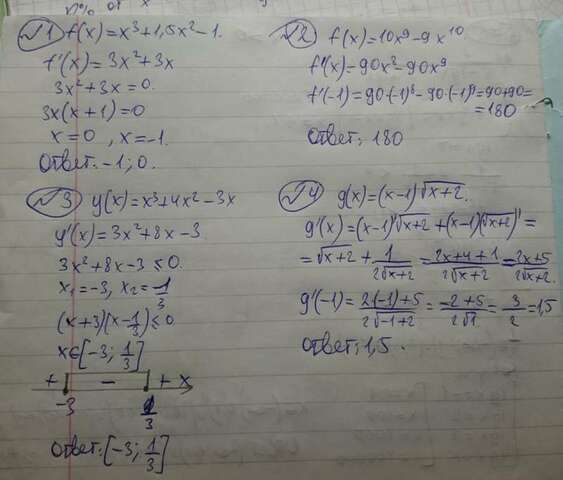 №1 f(x)=x³+1,5x²-1.
f'(x)=3x²+3x
3x²+3x=0.
3x(x+1)=0
x=0, x=-1.
Ответ: -1; 0.
№2 f(x)=10x⁹-9x¹⁰
f'(x)=90x⁸-90x⁹
f'(-1)=90·(-1)⁸-90·(-1)⁹=90+90=
=180
Ответ: 180
№3 y(x)=x³+4x²-3x
y'(x)=3x²+8x-3
3x²+8x-3≤0.
x₁=-3, x₂=1/3
(x+3)(x-1/3)≤0
x∈[-3; 1/3]
+ - + x
-3 1/3
Ответ: [-3; 1/3]
№4 g(x)=(x-1)√(x+2).
g'(x)=(x-1)'√(x+2)+(x-1)(√(x+2))'=
=√(x+2)+1/(2√(x+2))=(2x+4+1)/(2√(x+2))=(2x+5)/(2√(x+2)).
g'(-1)=(2(-1)+5)/(2√(-1+2))=(-2+5)/(2√1)=3/2=1,5
Ответ: 1,5.